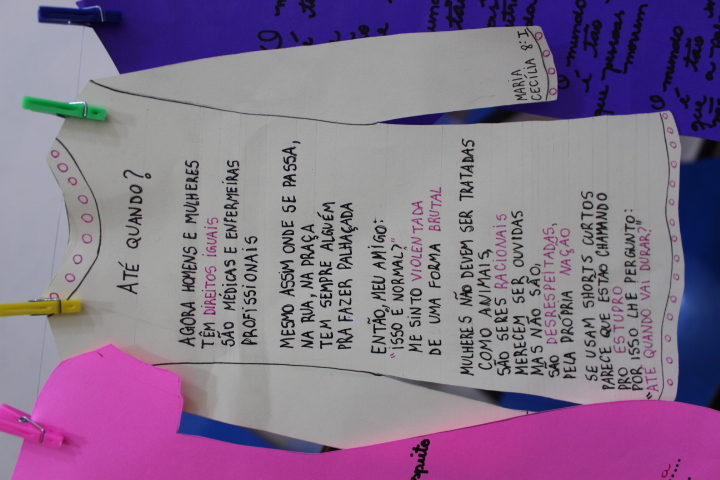 ATÉ QUANDO?
AGORA HOMENS E MULHERES
TÊM DIREITOS IGUAIS
SÃO MÉDICAS E ENFERMEIRAS
PROFISSIONAIS
MESMO ASSIM ONDE SE PASSA,
NA RUA, NA PRAÇA
TEM SEMPRE ALGUÉM
PRA FAZER PALHAÇADA
ENTÃO, MEU AMIGO:
"ISSO É NORMAL?"
ME SINTO VIOLENTADA
DE UMA FORMA BRUTAL
MULHERES NÃO DEVEM SER TRATADAS
COMO ANIMAIS,
SÃO SERES RACIONAIS
MERECEM SER OUVIDAS
MAS NÃO SÃO.
SÃO DESRESPEITADAS,
PELA PRÓPRIA NAÇÃO
SE USAM SHORTS CURTOS
PARECE QUE ESTÃO CHAMANDO
PRO ESTUPRO
POR ISSO LHE PERGUNTO:
"ATÉ QUANDO VAI DURAR?"
MARIA
CECILIA 8: I
O mundo
é tão
que pessoas
morrem
O mundo
é tão
que a